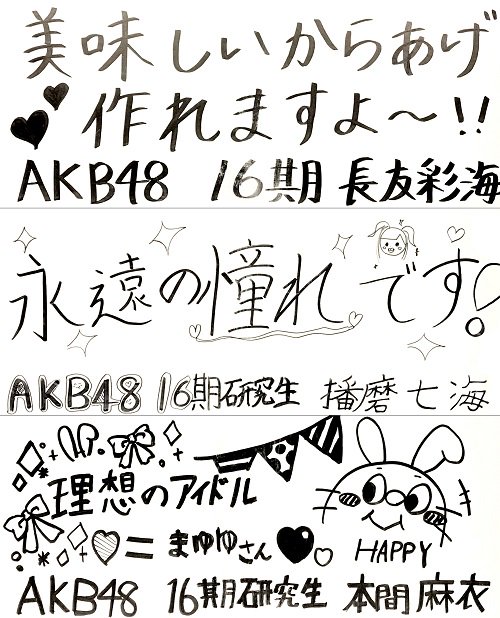 美味しいからあげ
作れますよ〜!!
AKB48 16期 長友彩海
永遠の憧れです!
AKB48 16期研究生 播磨七海
理想のアイドル
=まゆゆさん
HAPPY
AKB48 16期研究生 本間麻衣